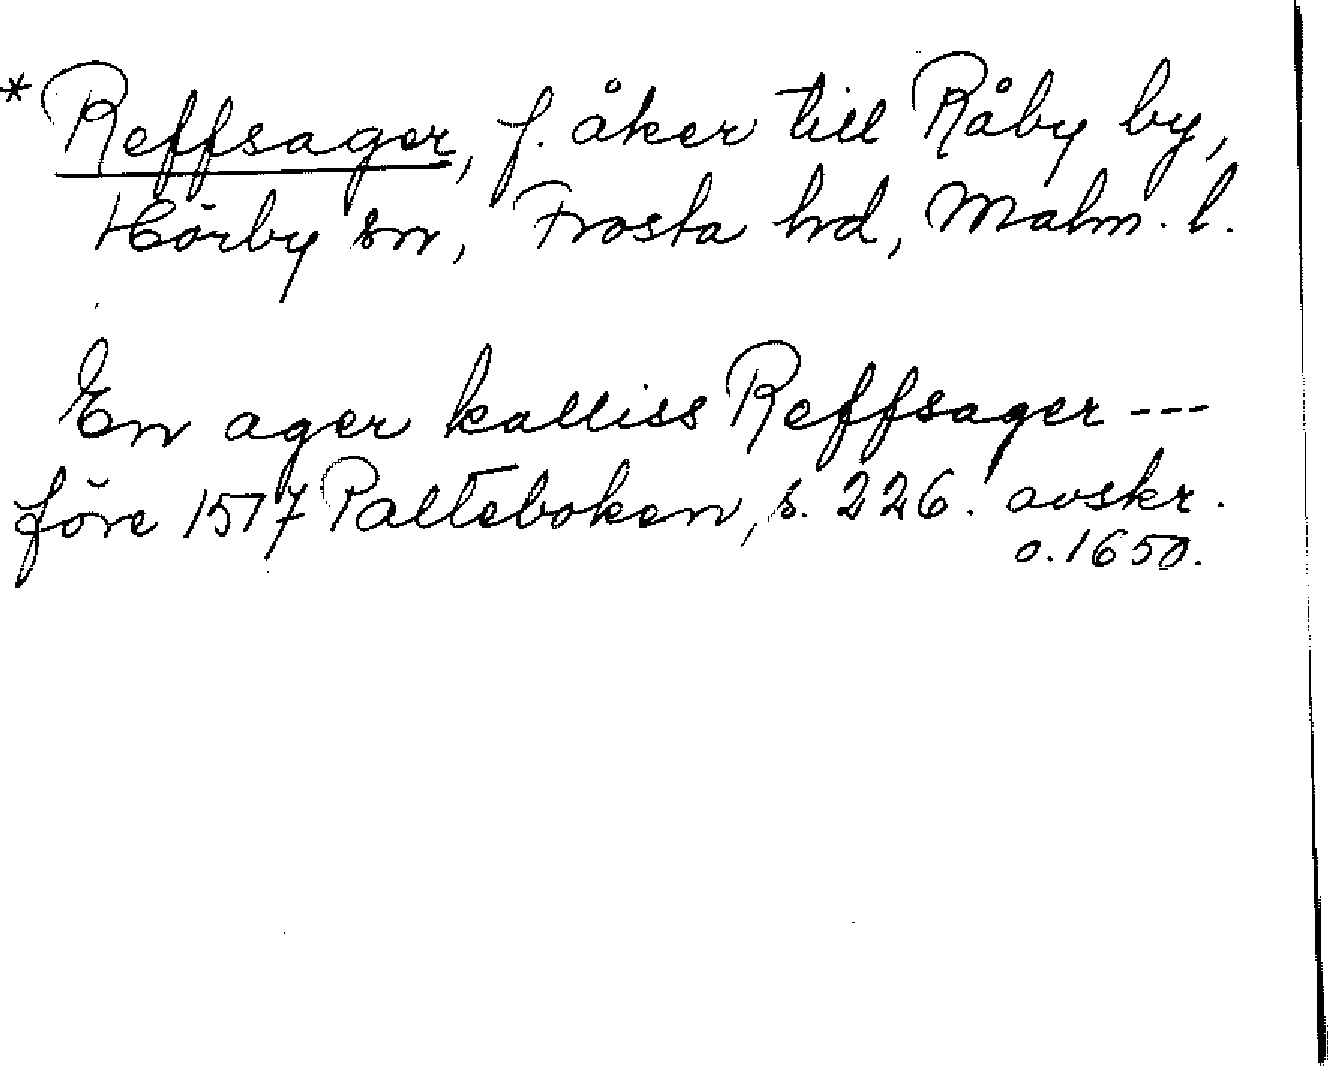 *Reffsager, f. åker till Råby by,
Hörby sn, Frosta hd, Malm. l.
En ager kalliss Reffsager ---
före 1517 Palteboken, s. 226. avskr.
o. 1650.